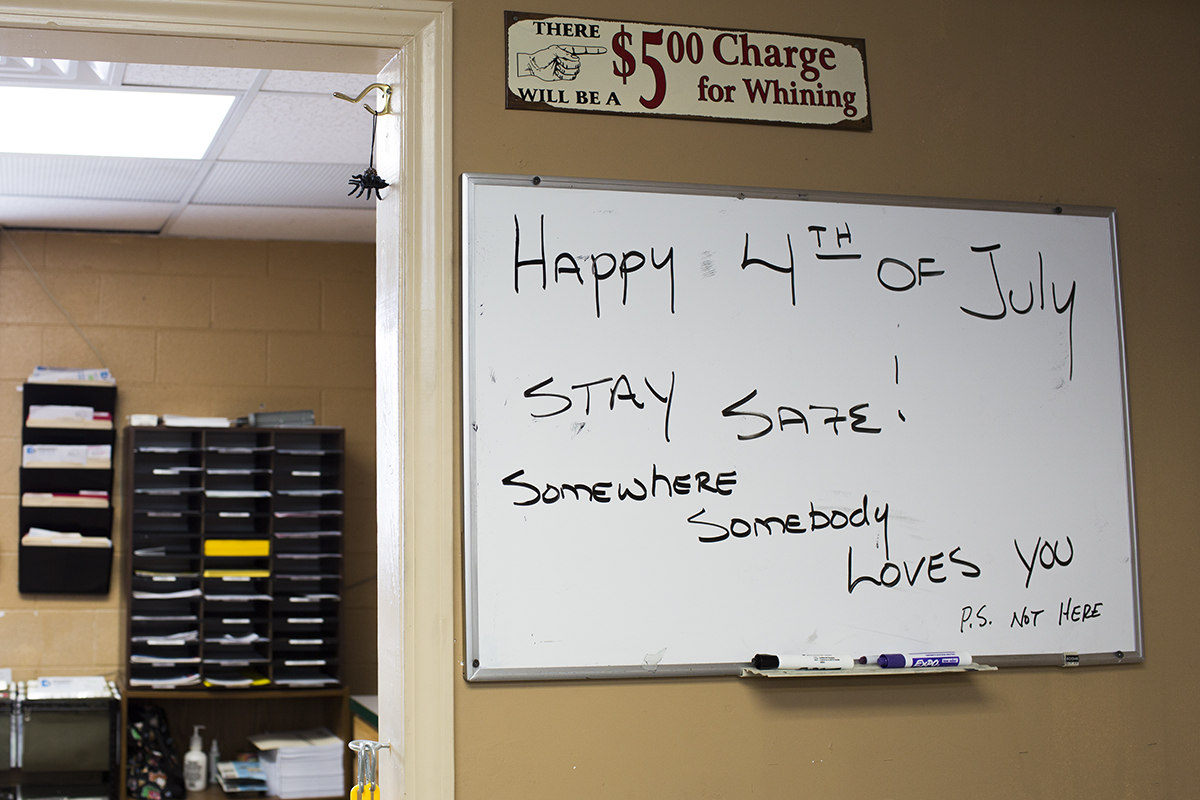 THERE
WILL BE A
$5.00 Charge
for Whining
Happy 4TH OF July
STAY SAFE!
SOMEWHERE
SOMEBODY
LOVES YOU
P.S. NOT HERE
EXPO